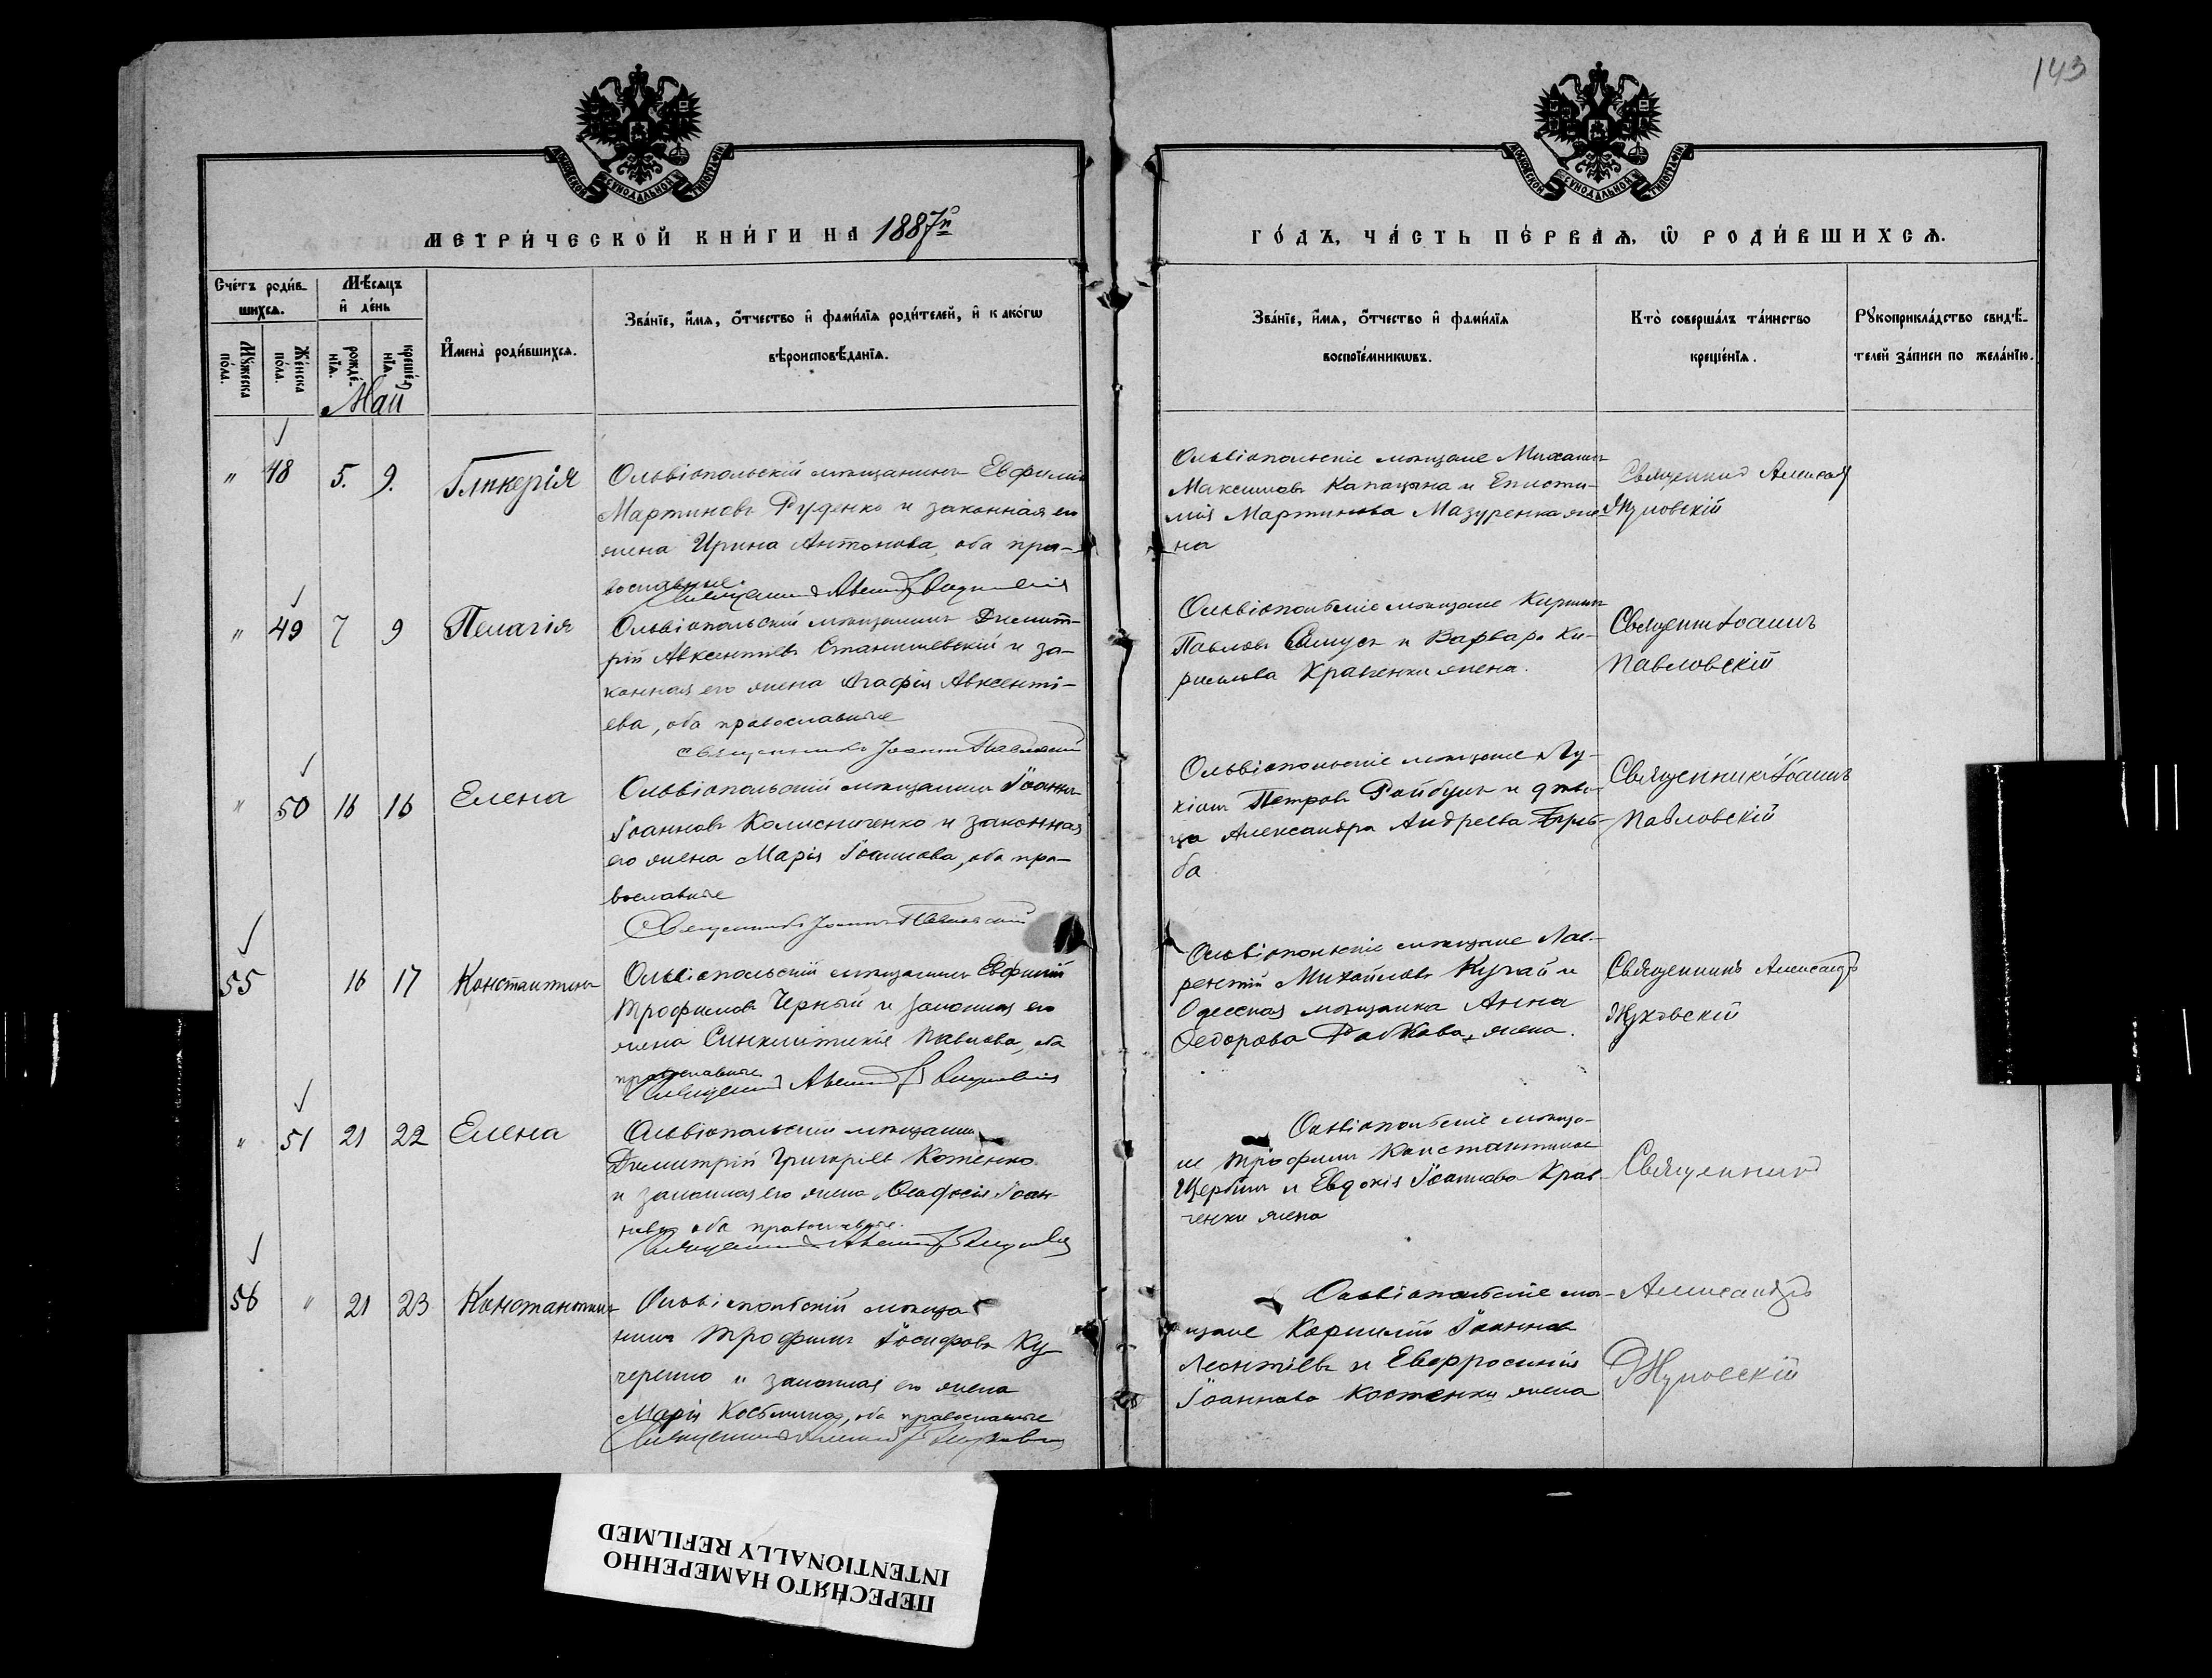 143
МОСКОВСКОЙ СѴНОДАЛЬНОЙ ТИПОГРАФІИ
МОСКОВСКОЙ СѴНОДАЛЬНОЙ ТИПОГРАФІИ
МЕТРИ́ЧЕСКОЙ КНИ́ГИ НА 1887й
ГО́ДЪ, ЧА́СТЬ ПЕ́РВАѦ, Ѿ РОДИ́ВШИХСѦ.
Сче́тъ роди́в-
шихсѧ.
Мꙋ́жеска по́ла.
Же́нска по́ла.
Мѣ́сѧцъ
и҆ де́нь
рожде́-
нїѧ.
креще́-
нїѧ.
Май
И҆мена̀ роди́вшихсѧ.
Зва́нїе, и҆́мѧ, ѻ҆́тчество и҆ фами́лїѧ роди́телей, и҆ како́гѡ
вѣроисповѣ́данїѧ.
Зва́нїе, и҆́мѧ, ѻ҆́тчество и҆ фами́лїѧ
воспрїе́мникѡвъ.
Кто̀ соверша́лъ та́инство
креще́нїѧ.
Рꙋкоприкла́дство свидѣ́-
телей за́писи по жела́нїю.
" 48 5. 9. Гликерія
Ольвіопольскій мѣщанинъ Евфимій
Мартиновъ Руденко и законная его
жена Ирина Антонова, оба пра-
вославные.
Ольвіопольскіе мѣщане Михаилъ
Максимовъ Капацына и Еписти-
мія Мартинова Мазуренка же-
на
Священникъ Александръ
Жуковскій
" 49 7 9 Пелагія
Ольвіопольскій мѣщанинъ Димит-
рій Авксентіевъ Станишевскій и за-
конная его жена Агафія Авксенті-
ева, оба православные
Священникъ Іоаннъ Павловскій
Ольвіопольскіе мѣщане Кириллъ
Павловъ и Варвара Ки-
рилова Кравченки жена.
Священн Іоаннъ
Павловскій
" 50 16 16 Елена
Ольвіопольскій мѣщанинъ Іоаннъ
Іоанновъ Колисниченко и законная
его жена Марія Іоаннова, оба пра-
вославные
Священникъ Іоаннъ Павловскій
Ольвіопольскіе мѣщане Лу-
кіанъ Петровъ и дѣви-
ца Александра Андреева
ба
Священникъ Іоаннъ
Павловскій
55 16 17 Константинъ
Ольвіопольскій мѣщанинъ Евфимій
Трофимовъ Черный и законная его
жена Синклитикія Павлова, оба
православные
Ольвіопольскіе мѣщане Лав-
рентій Михайловъ Кучай и
Одесская мѣщанка Анна
Федорова жена.
Священникъ Александръ
Жуковскій
" 51 21 22 Елена
Ольвіопольскій мѣщанинъ
Димитрій Григоріевъ Котенко
и законная его жена Ѳеодосія Іоан-
нова оба православные.
Ольвіопольскіе мѣща-
не Трофимъ Константиновъ
Щербина и Евдокія Іоаннова Крав-
ченки жена
Священникъ
56 " 21 23 Константинъ
Ольвіопольскій мѣща-
нинъ Трофимъ Іосифовъ Ку-
черенко и законная его жена
Марія Косьмина, оба православные
Ольвіопольскіе мѣ-
щане Корнилій Іоанновъ
Леонтіевъ и Евфросинія
Іоаннова Костенки жена
Александръ
Жуковскій
ПЕРЕСНЯТО НАМЕРЕННО
INTENTIONALLY REFILMED